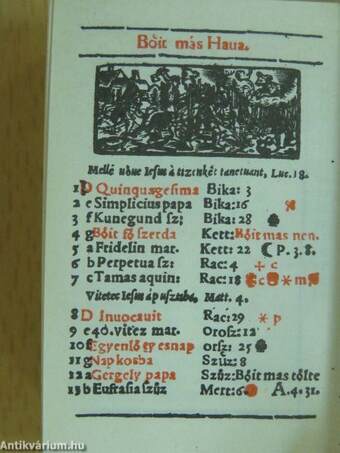 Bőit más Haua.
Mellé vöue Iesus á tizenkét tanetuant, Luc. 18.
1 D Quinquagesima Bika: 3
2 e Simplicius papa Bika: 16
3 f Kunegund sz: Bika: 28
4 g Bőit fő szerda Kett: Bőit mas nen.
5 a Fridelin mar. Kett: 22 P. 3. 8.
6 b Perpetua sz: Rac: 4 + c
7 c Tamas aquin: Rac: 18 c m
Vitetec Iesus á pusztabā, Matt. 4.
8 D Inuocauit Rac: 29 p
9 e 40. vitez mar. Orosz: 12
10 f Egyenlő ey es nap orsz: 25
11 g Nap kosba Szűz: 8
12 a Gergely papa Szűz: Bőit mas tőlte
13 b Eufrasia szűz Mert: 6 A. 4. 31.
Antikvárium.hu
Antikvárium.hu